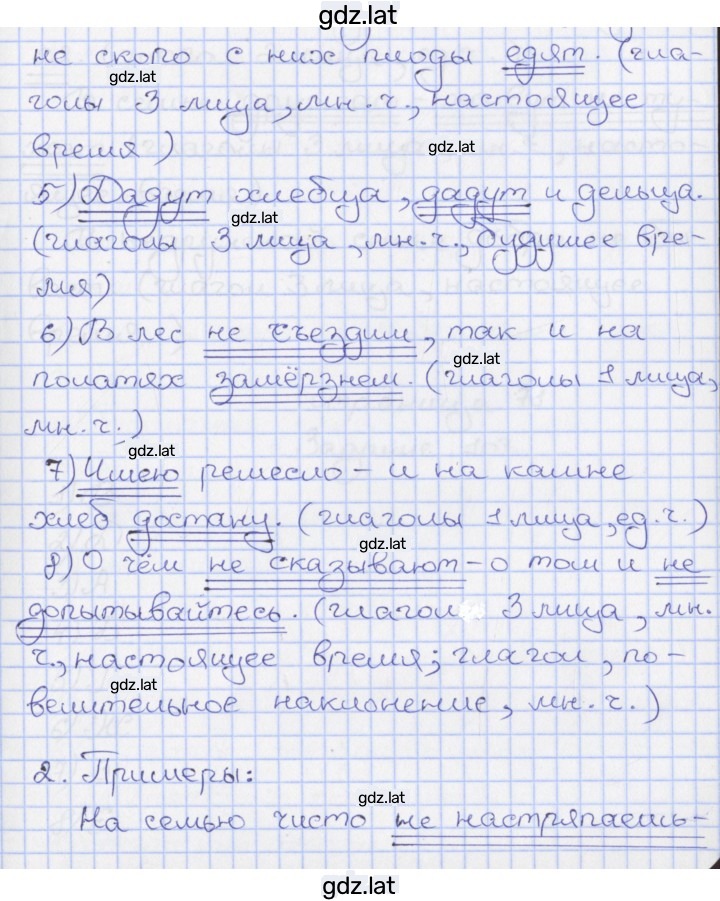 gdz.lat
не скоро с них плоды едят. (гла-
gdz.lat
голы 3 лица, мн. ч., настоящее
время)
gdz.lat
5) Дадут хлебца, дадут и дельца.
gdz.lat
(глаголы 3 лица, мн. ч., будущее вре-
мя)
6) В лес не съездим, так и на
gdz.lat
полатях замёрзнем. (глаголы 1 лица,
мн. ч.)
gdz.lat
7) Имею ремесло – и на камне
хлеб достану. (глаголы 1 лица, ед. ч.)
gdz.lat
8) О чём не сказывают – о том и не
допытывайтесь. (глагол 3 лица, мн.
ч., настоящее время; глагол, по-
gdz.lat
велительное наклонение, мн. ч.)
2. Примеры:
gdz.lat
На семью чисто не настряпаешь-
gdz.lat